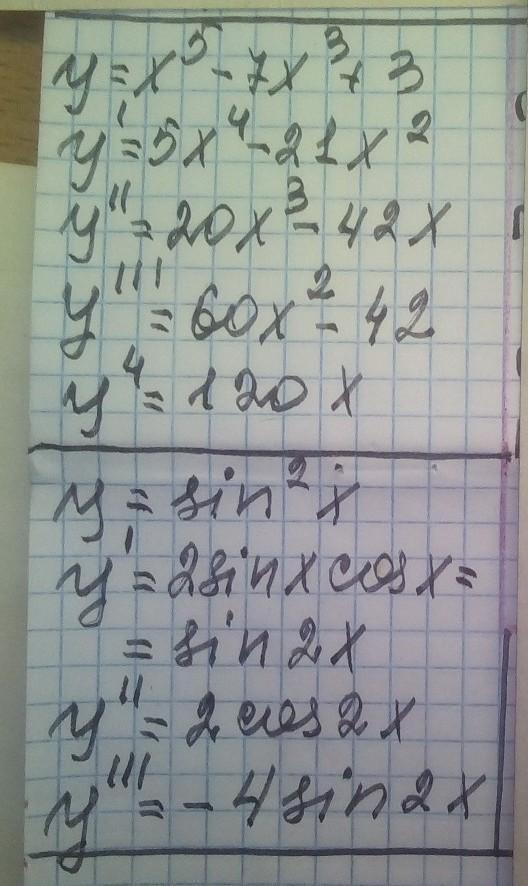 y = x⁵ - 7x³ + 3
y' = 5x⁴ - 21x²
y'' = 20x³ - 42x
y''' = 60x² - 42
y⁴ = 120x
y = sin²x
y' = 2sinx cosx =
= sin2x
y'' = 2cos2x
y''' = -4sin2x